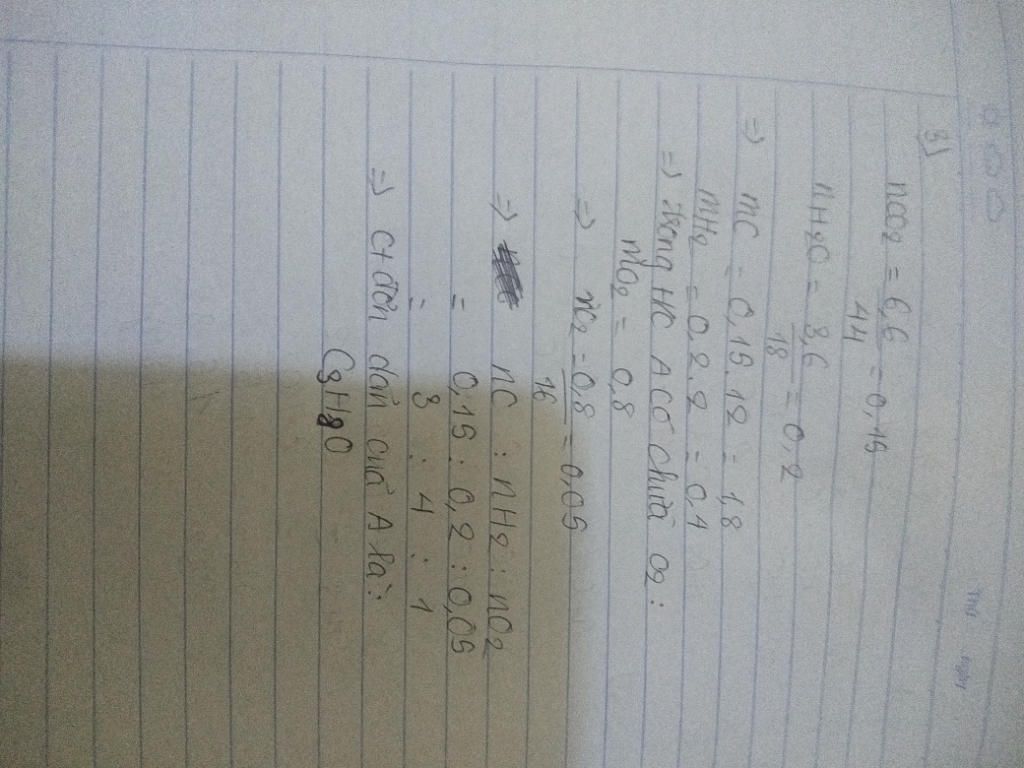 Thứ ngày
3)
nCO2 = 6,6/44 = 0,15
nH2O = 3,6/18 = 0,2
=> mC = 0,15.12 = 1,8
mH2 = 0,2.2 = 0,4
=> Trong HC A có chứa O2:
mO2 = 0,8
=> nO2 = 0,8/16 = 0,05
=> nC : nH2 : nO2
= 0,15 : 0,2 : 0,05
= 3 : 4 : 1
=> Ct đơn dản của A là:
C3H8O